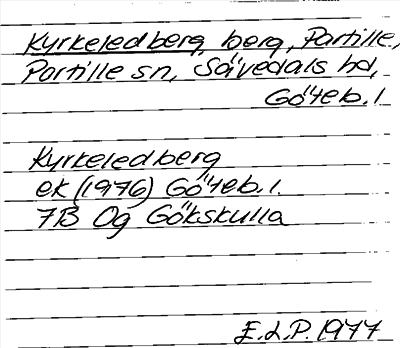 Kyrkeledberg, berg, Partille,
Partille sn, Sävedals hd,
Göteb. l
Kyrkeledberg
ek (1976) Göteb. l.
7B 0g Gökskulla
E.L.P. 1977